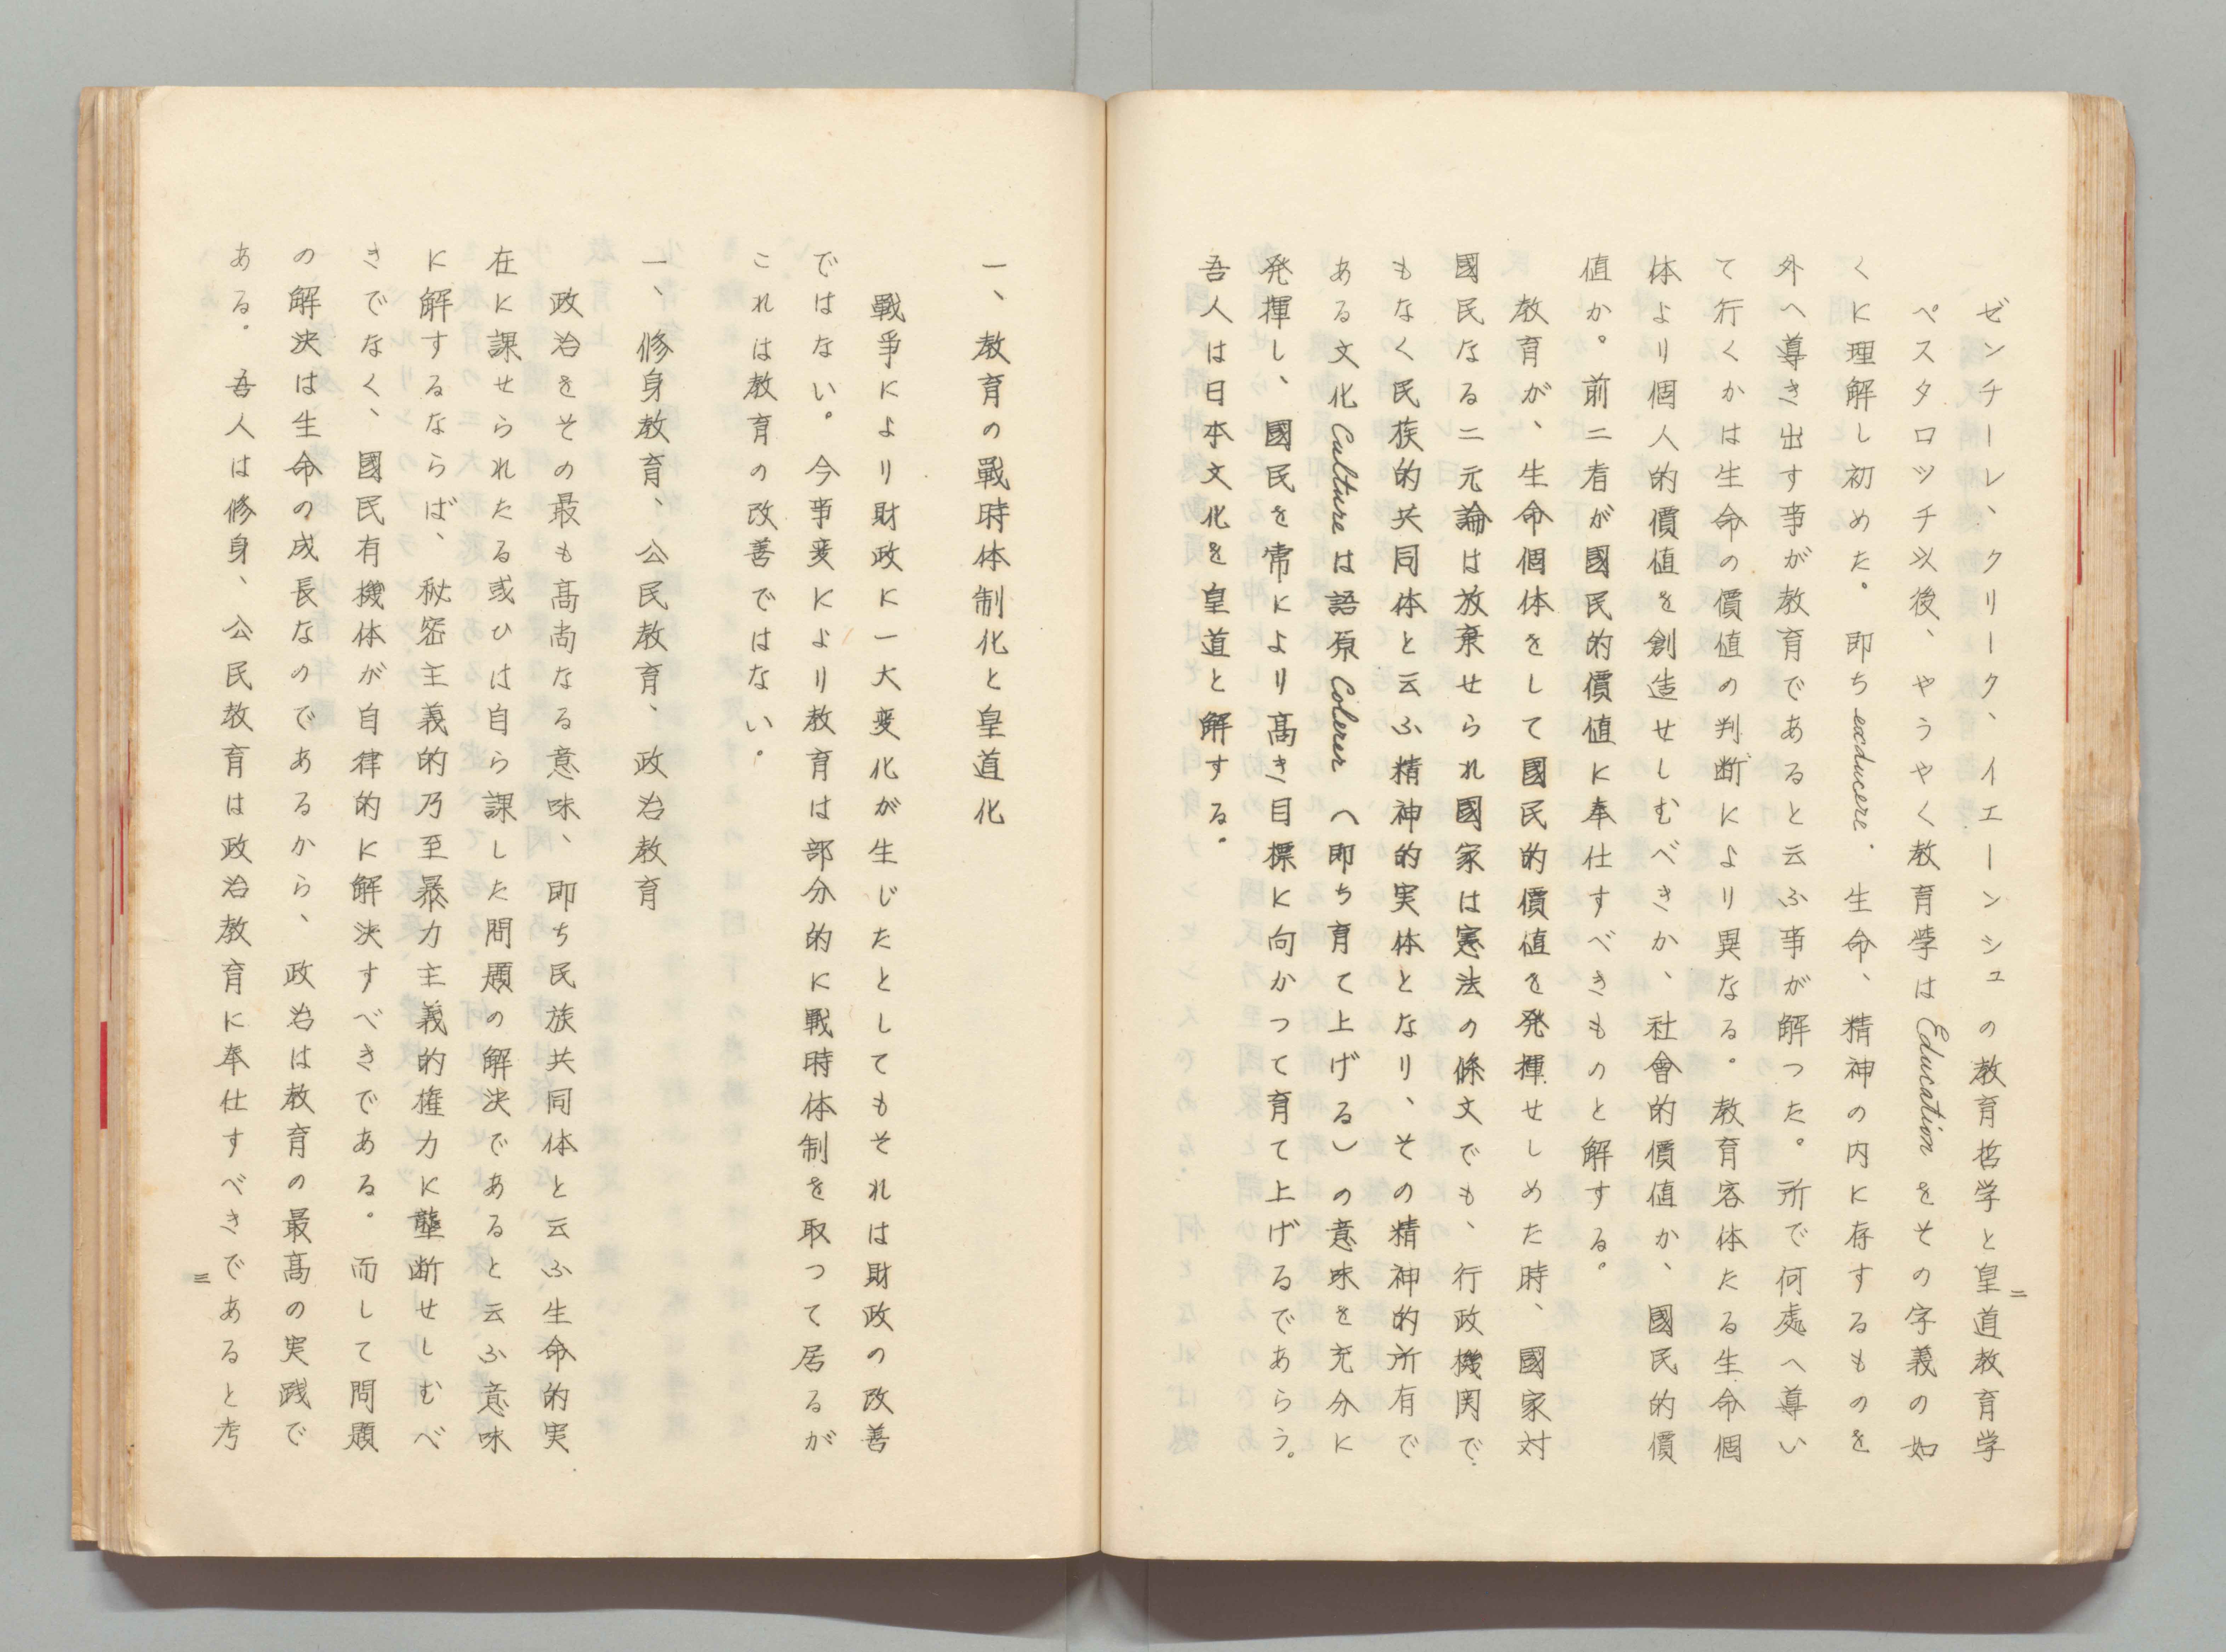 ゼンチーレ、クリーク、イエーンシュの教育哲学と皇道教育学
ペスタロツチ以後、やうやく教育学はEducationをその字義の如
くに理解し初めた。即ちexducere．生命、精神の内に存するものを
外へ導き出す事が教育であると云ふ事が解つた。所で何處へ導い
て行くかは生命の價値の判断により異なる。教育客体たる生命個
体より個人的價値を創造せしむべきか、社會的價値か、國民的價
値か。前二者が國民的價値に奉仕すべきものと解する。
教育が、生命個体をして國民的價値を発揮せしめた時、國家対
國民なる二元論は放棄せられ國家は憲法の條文でも、行政機関で
もなく民族的共同体と云ふ精神的実体となり、その精神的所有で
ある文化Cultureは語原Colerer（即ち育て上げる）の意味を充分に
発揮し、國民を常により高き目標に向かつて育て上げるであらう。
吾人は日本文化を皇道と解する。
二
一、教育の戰時体制化と皇道化
戰爭により財政に一大変化が生じたとしてもそれは財政の改善
ではない。今事変により教育は部分的に戰時体制を取つて居るが
これは教育の改善ではない。
一、修身教育、公民教育、政治教育
政治をその最も高尚なる意味、即ち民族共同体と云ふ生命的実
在に課せられたる或ひは自ら課した問題の解決であると云ふ意味
に解するならば、秘密主義的乃至暴力主義的権力に壟断せしむべ
きでなく、國民有機体が自律的に解決すべきである。而して問題
の解決は生命の成長なのであるから、政治は教育の最高の実践で
ある。吾人は修身、公民教育は政治教育に奉仕すべきであると考
三